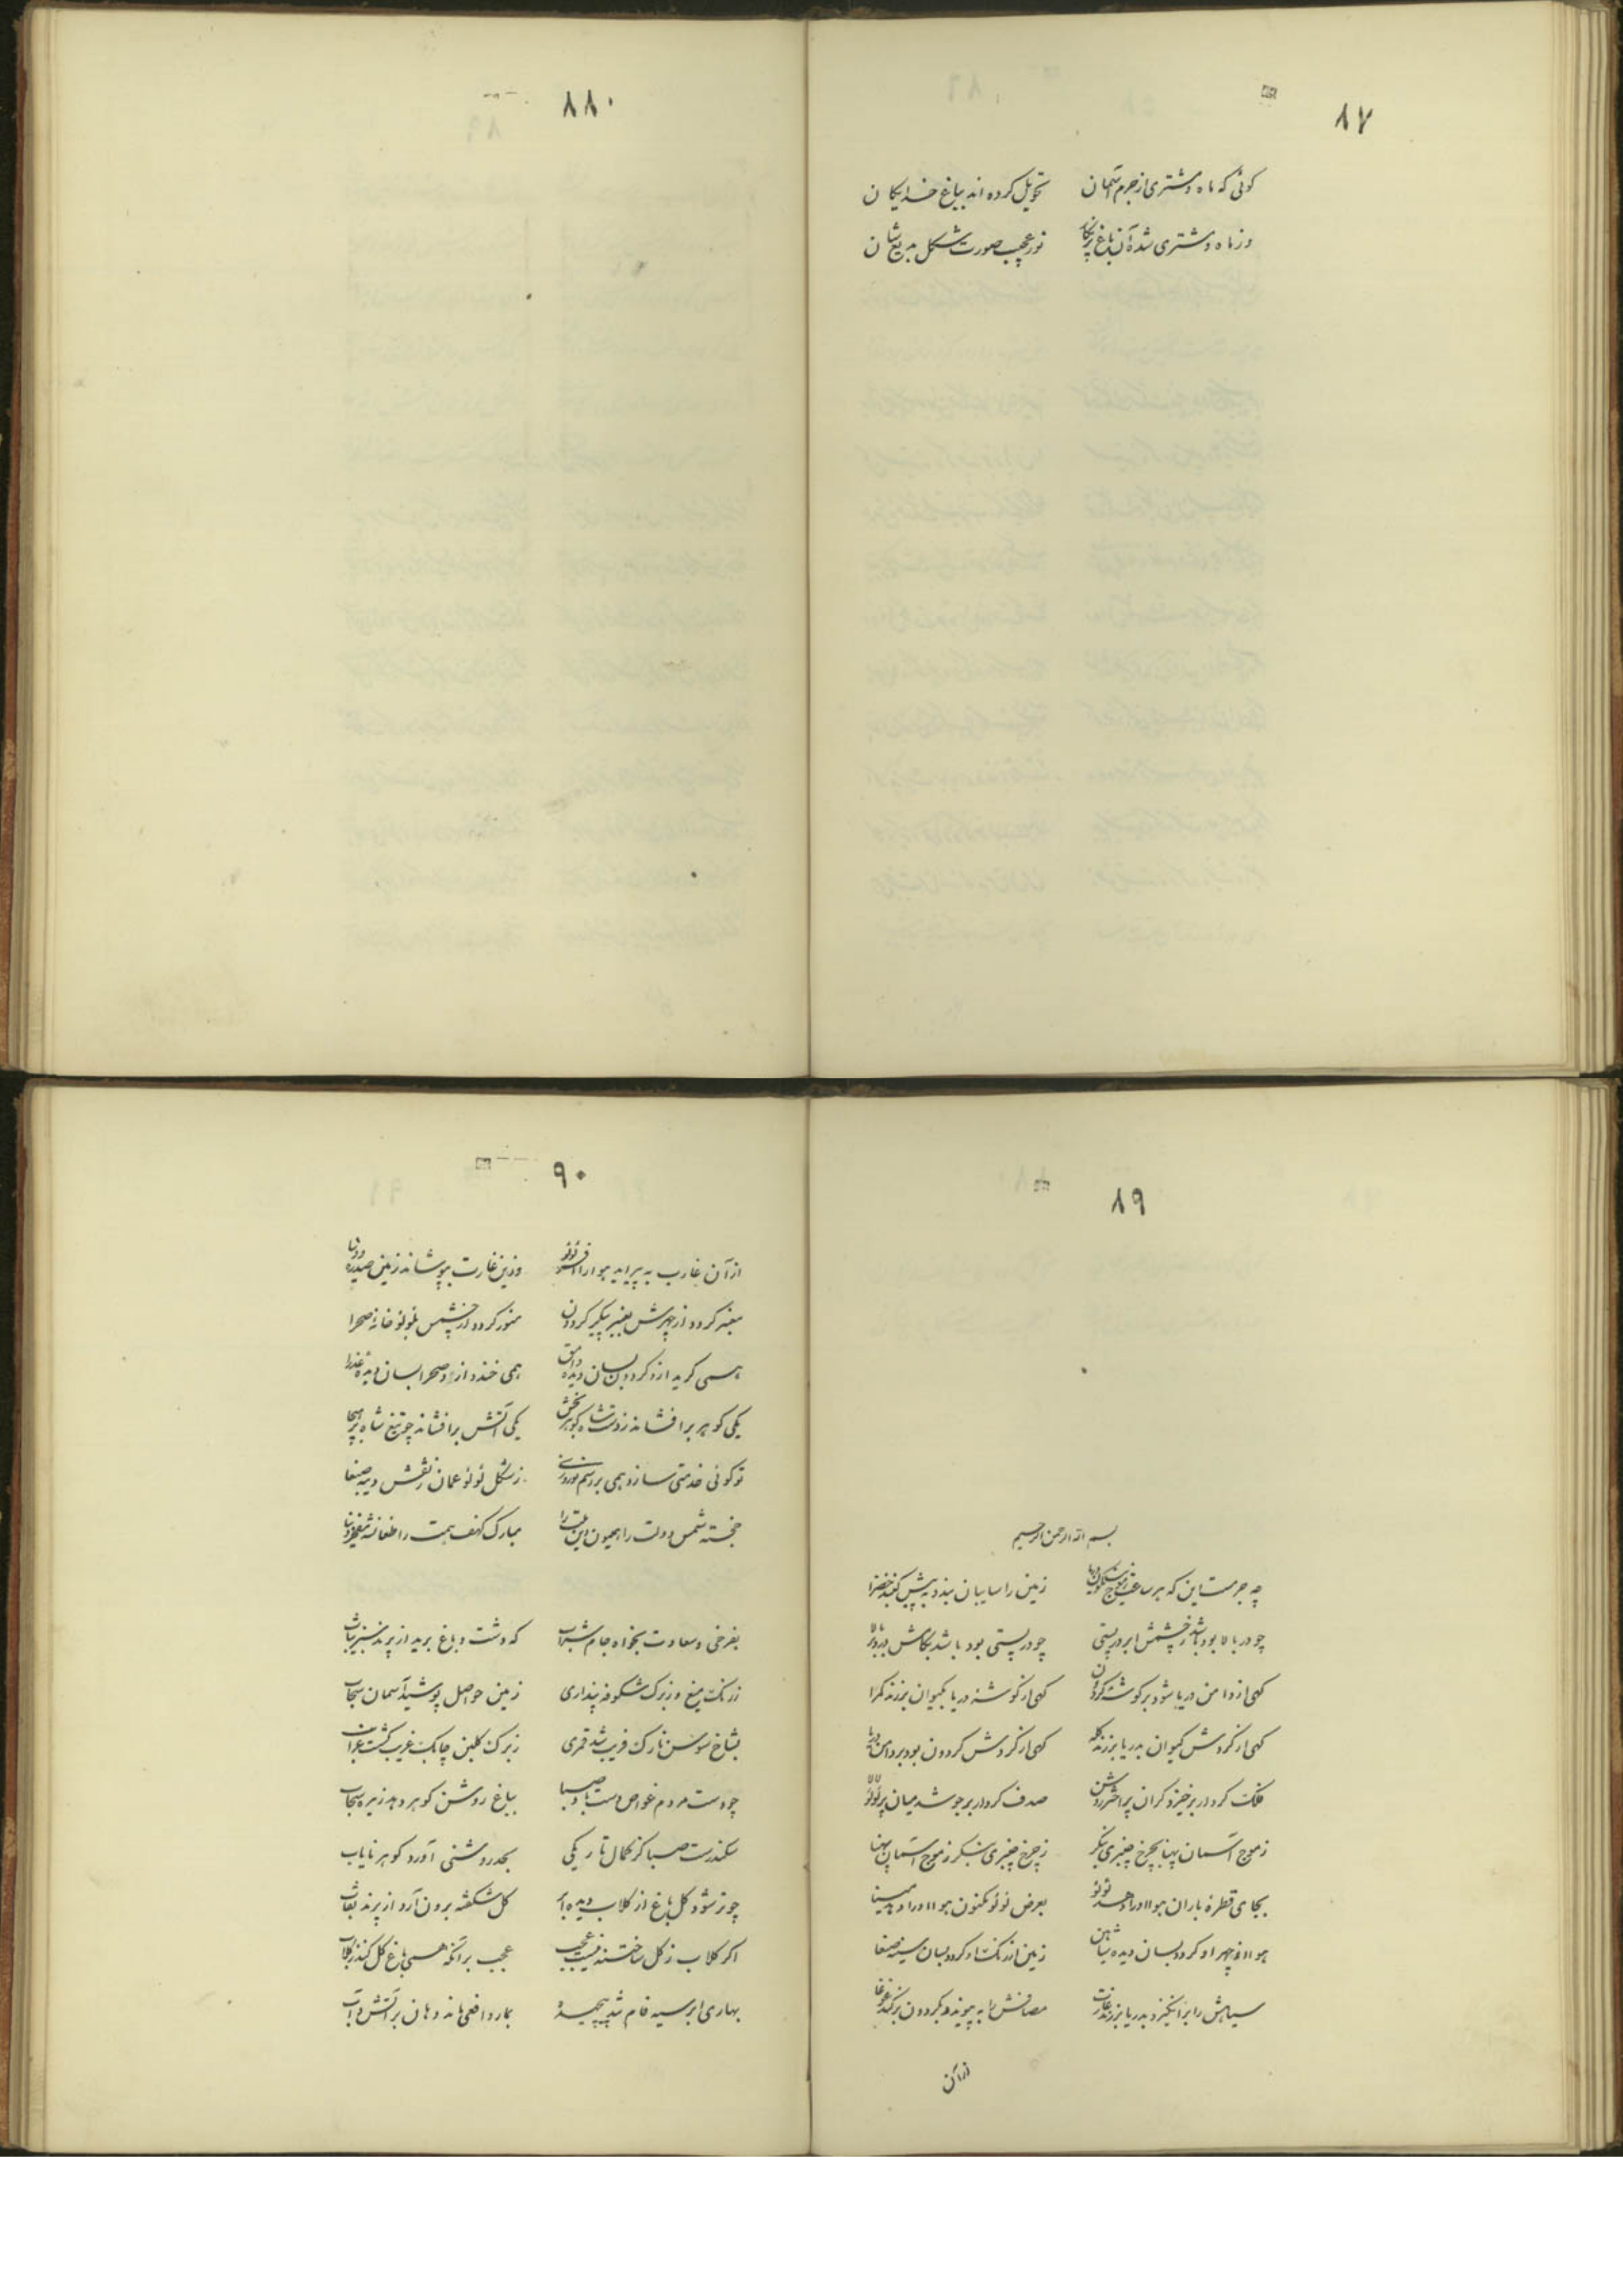 ۸۷
کوئی که ماه و مشتری از جرم آسمان تحویل کرده اند بباغ خدایکان
وز ماه و مشتری شده آن باغ پرنکار نور عجب صورت شکل مریع شان
۸۸۰
۸۹
بسم الله الرحمن الرحیم
چه جرمست این که هر ساعت ز موج نیلکون دریا زمین را سایبان بندد به پیش کنبد خضرا
چو در بالا بود باشد ز چشمش ابر در پستی چو در پستی بود باشد بکامش دود در بالا
کهی از دامن دریا شود بر کوشه کردون کهی از کوشه دریا بکیوان برزند کمرا
کهی از کردش کیوان بدریا برزند کله کهی از کردش کردون بود بر دامن دریا
فلک کردار برخیزد کران پر اختر روشن صدف کردار برجوشد میان پر لؤلؤ لالا
ز موج آسمان پهنا بچرخ چنبری بنکر ز چرخ چنبری بنکر ز موج آسمان پهنا
بجای قطره باران هوا او را دهد لولو بعرض لؤلؤ مکنون هوا او را دهد مینا
هوا از چهر او کردد بسان دیده شاهین زمین از رنک او کردد بسان سینه عنقا
سپاهش را برانکیزد بدریا برزند غارت مصافش را به پیوندد بکردون برکند غوغا
از آن
۹۰
از آن غارت به پیراید هوا را افسر لؤلؤ وزین غارت بپوشاند زمین صدره دیبا
معنبر کردد از چهرش بعنبر پیکر کردون منور کردد از چشمش بلولو خانه صحرا
همی کرید ازو کردون بسان دیده وامق همی خندد ازو صحرا بسان دیده عذرا
یکی کوهر برافشاند ز دست شاه کوهربخش یکی آتش برافشاند چو تیغ شاه پر هیجا
تو کوئی خدمتی سازد همی بر رسم نوروزی ز شکل لؤلؤ عمان ز نقش دیبه صنعا
خجسته شمس دولت را همیون زین ملت را مبارک کهف همت را طغانشه مفخر دنیا
بفرخی و سعادت بخواه جام شراب که دشت و باغ برید از پرند سبز ثیاب
ز رنک میغ و ز برک شکوفه پنداری زمین حواصل پوشید آسمان سنجاب
بشاخ سوسن نازک قریب شد قمری ز برک کلبن چابک غریب کشت غراب
چو دست مردم غواص دست باد صبا بباغ روشن کوهر دهد ز تیره سحاب
سکندرست صبا کز کمال تاریکی بجد روشنی آورد کوهر نایاب
چو تر شود کل باغ از کلاب دیده ابر کل شکفته برون آرد از پرند نقاب
اکر کلاب ز کل ساختند نیست عجب عجب برآنکه همی باغ کل کند ز کلاب
بهاری ابر سیه فام شد پیچیده بمار و افعی ماند دهان پر آتش و آب